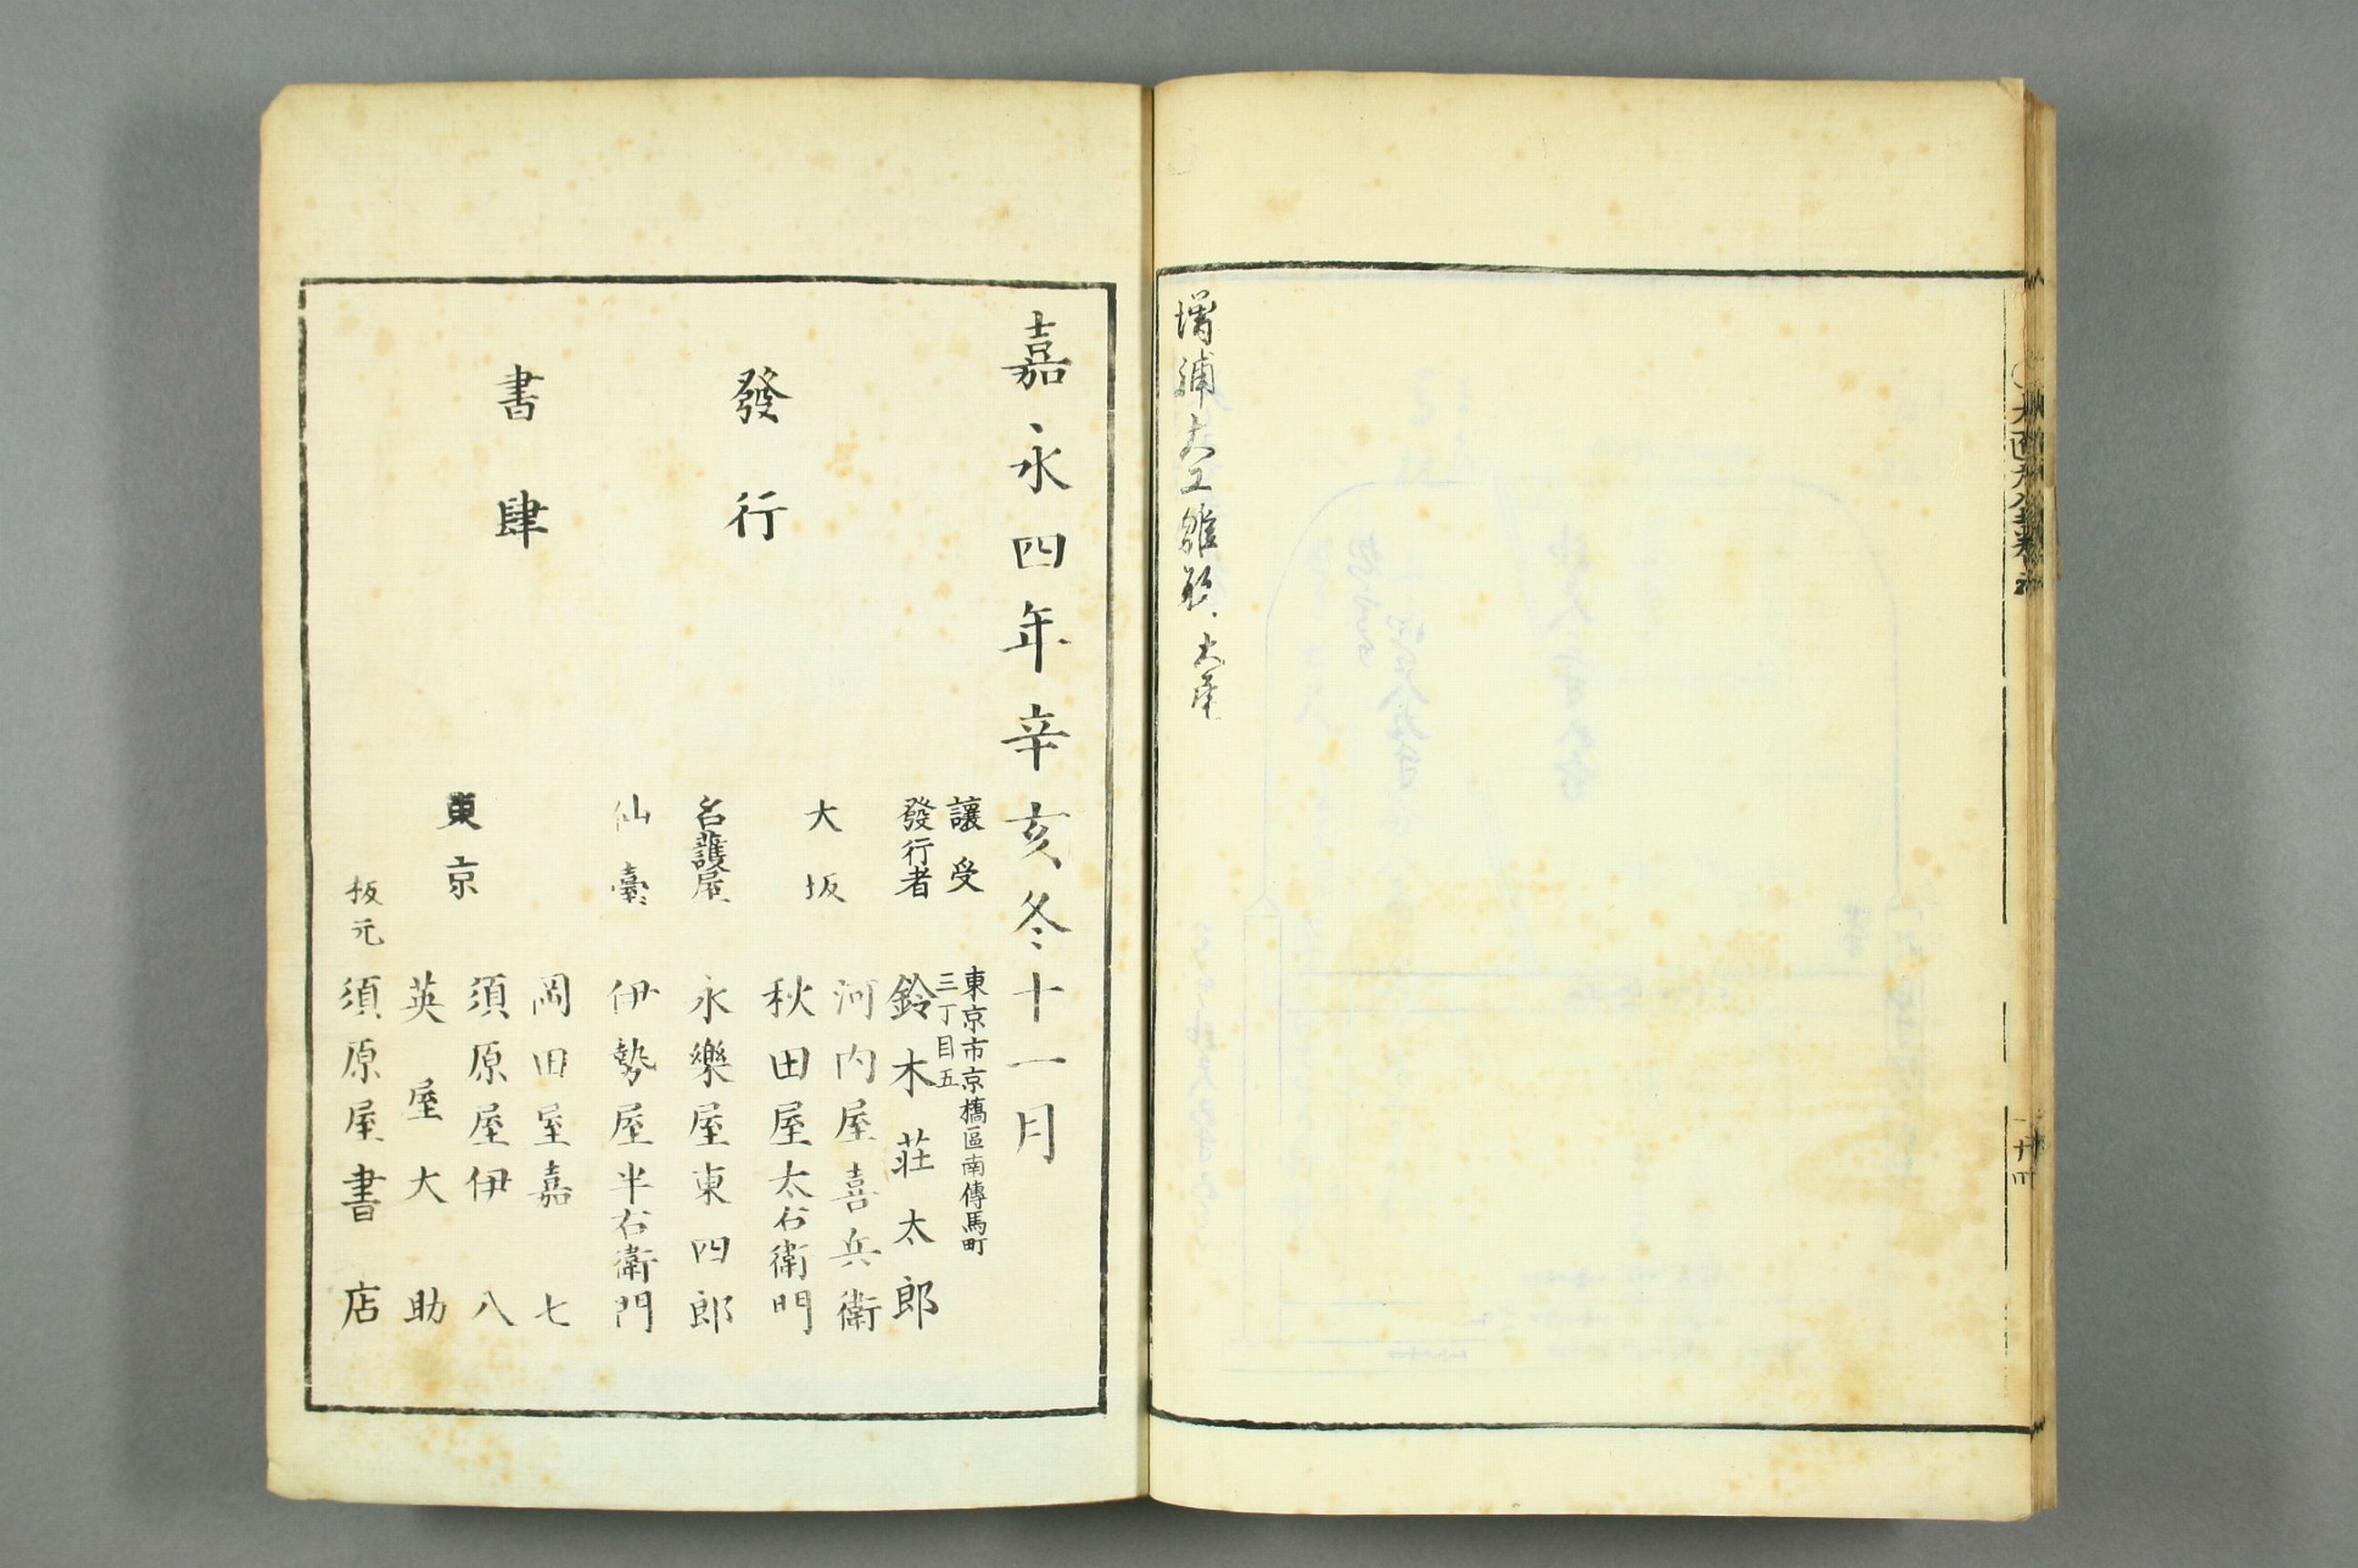 増補大工雛形 大尾
廿四
嘉永四年辛亥冬十一月
發行
書肆
讓受
發行者
東京市京橋區南傳馬町
三丁目五
鈴木荘太郎
大坂
河内屋喜兵衛
秋田屋太右衛門
名護屋
永樂屋東四郎
仙臺
伊勢屋半右衛門
東京
岡田屋嘉七
須原屋伊八
英屋大助
板元
須原屋書店